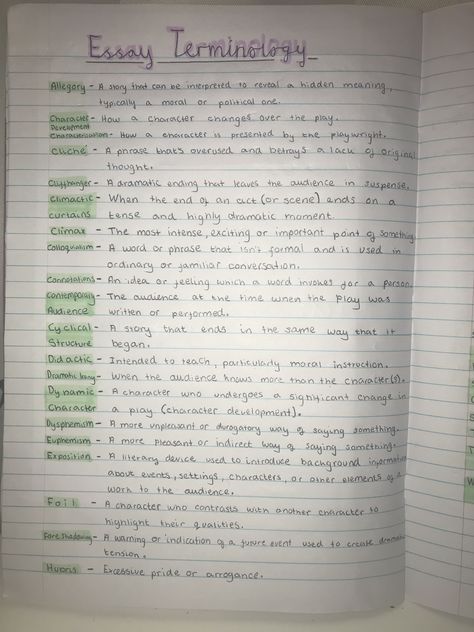 Essay Terminology
Allegory - A story that can be interpreted to reveal a hidden meaning,
typically a moral or political one.
Character Development - How a character changes over the play.
Characterisation - How a character is presented by the playwright.
Cliché - A phrase that's overused and betrays a lack of original
thought.
Cliffhanger - A dramatic ending that leaves the audience in suspense.
Climactic - When the end of an act (or scene) ends on a
curtains tense and highly dramatic moment.
Climax - The most intense, exciting or important point of something
Colloquialism - A word or phrase that isn't formal and is used in
ordinary or familiar conversation.
Connotations - An idea or feeling which a word invokes for a person.
Contemporary - The audience at the time when the play was
Audience written or performed.
Cyclical - A story that ends in the same way that it
Structure began.
Didactic - Intended to teach, particularly moral instruction.
Dramatic Irony - When the audience knows more than the character(s).
Dynamic - A character who undergoes a significant change in
Character a play (character development).
Dysphemism - A more unpleasant or derogatory way of saying something.
Euphemism - A more pleasant or indirect way of saying something.
Exposition - A literary device used to introduce background information
about events, settings, characters, or other elements of a
work to the audience.
Foil - A character who contrasts with another character to
highlight their qualities.
Foreshadowing - A warning or indication of a future event used to create dramatic
tension.
Hubris - Excessive pride or arrogance.